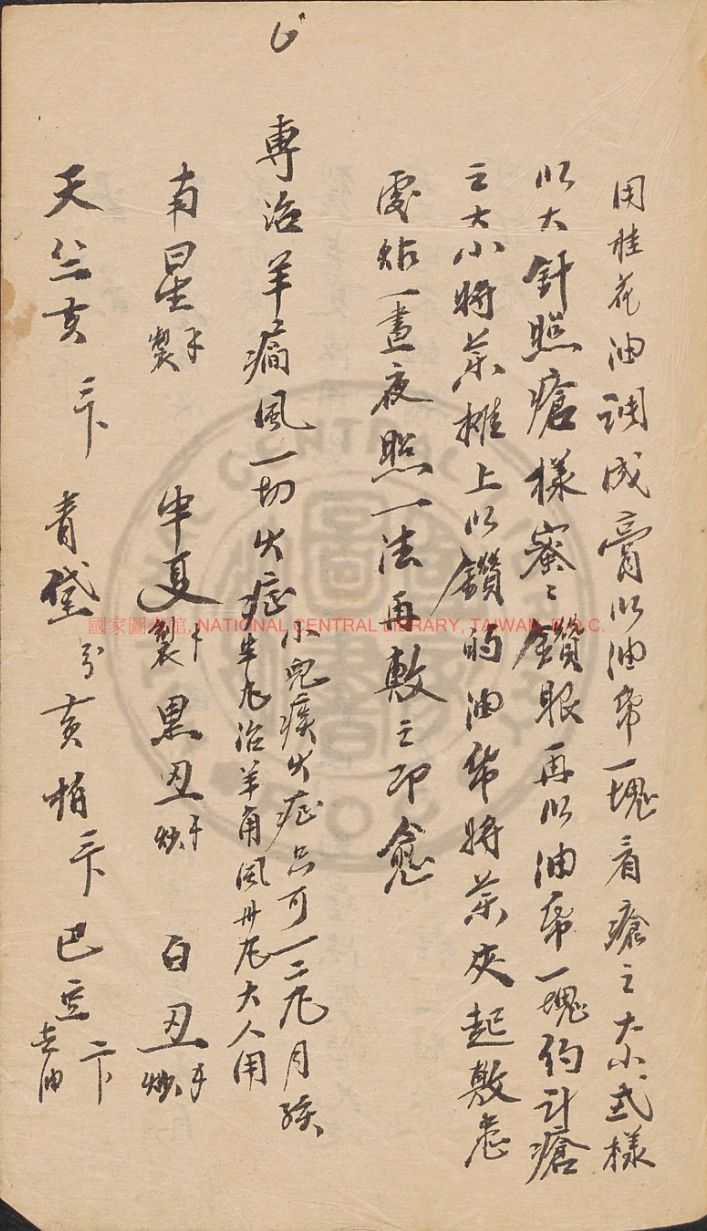 用桂花油調成膏以油帋一塊看瘡之大小式樣
以大針照瘡樣密密鑽眼再以油帋一塊約計瘡
之大小將藥攤上以鑽的油帋將藥夾起敷患
處帖一晝夜照一法再敷之即愈
專治羊癎風一切火症小兒痰火症只可一二丸月孩
半丸治羊角風卅丸大人用
南星 製 半夏 製 黑丑 炒 白丑 炒
天竺黄 三 青黛 黄柏 三 巴豆 去油
國家圖書館, NATIONAL CENTRAL LIBRARY, TAIWAN, R.O.C.